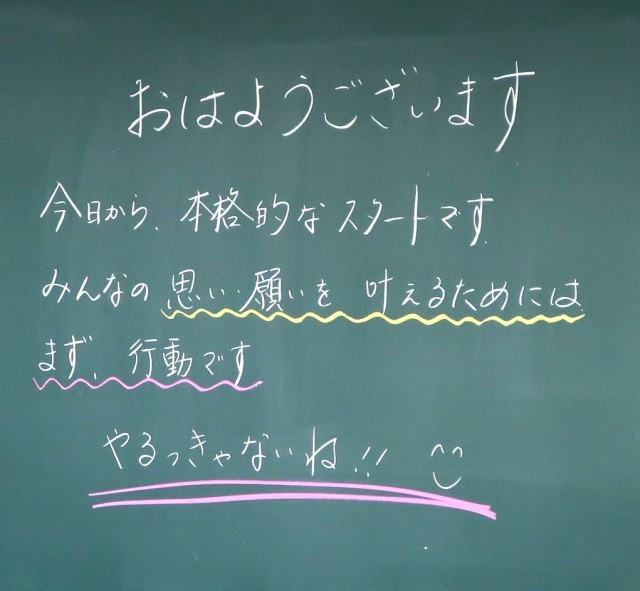 おはようございます
今日から、本格的なスタートです。
みんなの思い・願いを 叶えるためには
まず、行動です
やるっきゃないね!!